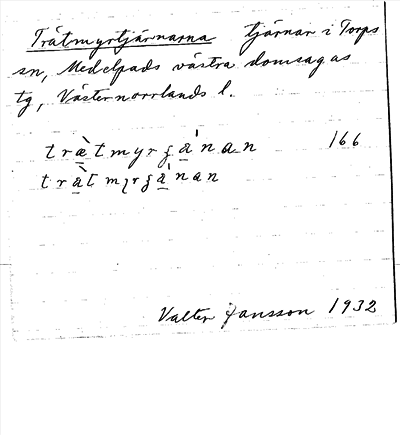 Tråtmyrtjärnarna tjärnar i Torps
sn, Medelpads västra domsagas
tg, Västernorrlands l.
166
Valter Jansson 1932